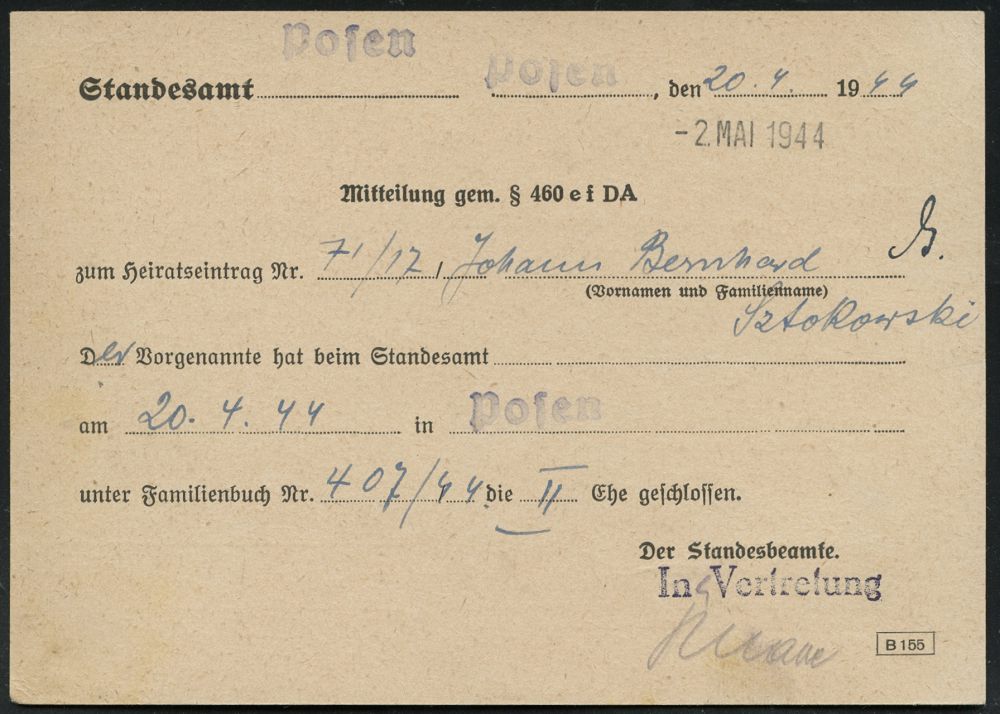 Posen
Standesamt Posen, den 20.4. 1944
-2. MAI 1944
Mitteilung gem. § 460 e f DA
zum Heiratseintrag Nr. 71/17, Johann Bernhard
(Vornamen und Familienname)
Sztokowski
Der Vorgenannte hat beim Standesamt
am 20. 4. 44 in Posen
unter Familienbuch Nr. 407/44 die II Ehe geschlossen.
Der Standesbeamte.
In Vertretung
B 155